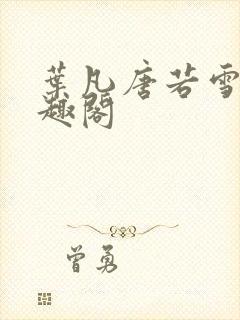 葉凡唐若雪
趣閣
曾勇